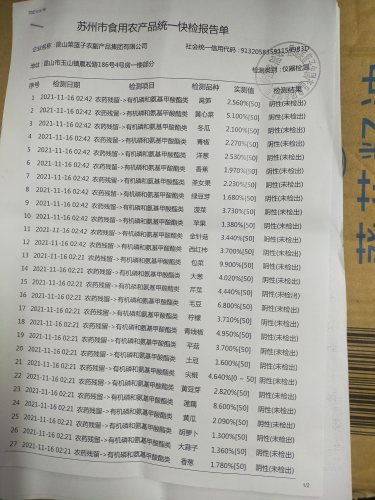 苏州市食用农产品统一快检报告单
企业名称：昆山菜篮子农副产品集团有限公司
社会统一信用代码：
地址：昆山市玉山镇嵩淞路186号4号房一楼部分
检测类别：仪器检测
序号 检测日期 检测项目 检测品种 实测值 检测结果
1 2021-11-16 02:42 农药残留->有机磷和氨基甲酸酯类 莴笋 2.560%[50] 阴性(未检出)
2 2021-11-16 02:42 农药残留->有机磷和氨基甲酸酯类 黄心菜 5.100%[50] 阴性(未检出)
3 2021-11-16 02:42 农药残留->有机磷和氨基甲酸酯类 冬瓜 2.100%[50] 阴性(未检出)
4 2021-11-16 02:42 农药残留->有机磷和氨基甲酸酯类 青椒 2.270%[50] 阴性(未检出)
5 2021-11-16 02:42 农药残留->有机磷和氨基甲酸酯类 洋葱 2.530%[50] 阴性(未检出)
6 2021-11-16 02:42 农药残留->有机磷和氨基甲酸酯类 香蕉 1.970%[50] 阴性(未检出)
7 2021-11-16 02:42 农药残留->有机磷和氨基甲酸酯类 圣女果 2.230%[50] 阴性(未检出)
8 2021-11-16 02:42 农药残留->有机磷和氨基甲酸酯类 绿豆芽 1.680%[50] 阴性(未检出)
9 2021-11-16 02:42 农药残留->有机磷和氨基甲酸酯类 菠菜 3.730%[50] 阴性(未检出)
10 2021-11-16 02:42 农药残留->有机磷和氨基甲酸酯类 苹果 1.380%[50] 阴性(未检出)
11 2021-11-16 02:42 农药残留->有机磷和氨基甲酸酯类 金针菇 3.440%[50] 阴性(未检出)
12 2021-11-16 02:42 农药残留->有机磷和氨基甲酸酯类 西红柿 3.700%[50] 阴性(未检出)
13 2021-11-16 02:21 农药残留->有机磷和氨基甲酸酯类 包菜 9.900%[50] 阴性(未检出)
14 2021-11-16 02:21 农药残留->有机磷和氨基甲酸酯类 大葱 4.020%[50] 阴性(未检出)
15 2021-11-16 02:21 农药残留->有机磷和氨基甲酸酯类 芹菜 4.440%[50] 阴性(未检出)
16 2021-11-16 02:21 农药残留->有机磷和氨基甲酸酯类 毛豆 6.800%[50] 阴性(未检出)
17 2021-11-16 02:21 农药残留->有机磷和氨基甲酸酯类 柠檬 3.710%[50] 阴性(未检出)
18 2021-11-16 02:21 农药残留->有机磷和氨基甲酸酯类 青线椒 4.950%[50] 阴性(未检出)
19 2021-11-16 02:21 农药残留->有机磷和氨基甲酸酯类 平菇 3.700%[50] 阴性(未检出)
20 2021-11-16 02:21 农药残留->有机磷和氨基甲酸酯类 土豆 1.600%[50] 阴性(未检出)
21 2021-11-16 02:21 农药残留->有机磷和氨基甲酸酯类 尖椒 4.640%[0 ~ 50] 阴性(未检出)
22 2021-11-16 02:21 农药残留->有机磷和氨基甲酸酯类 黄豆芽 2.820%[50] 阴性(未检出)
23 2021-11-16 02:21 农药残留->有机磷和氨基甲酸酯类 莲藕 8.600%[50] 阴性(未检出)
24 2021-11-16 02:21 农药残留->有机磷和氨基甲酸酯类 黄瓜 2.090%[50] 阴性(未检出)
25 2021-11-16 02:21 农药残留->有机磷和氨基甲酸酯类 胡萝卜 1.300%[50] 阴性(未检出)
26 2021-11-16 02:21 农药残留->有机磷和氨基甲酸酯类 大蒜子 1.360%[50] 阴性(未检出)
27 2021-11-16 02:21 农药残留->有机磷和氨基甲酸酯类 香葱 1.780%[50] 阴性(未检出)
1/2